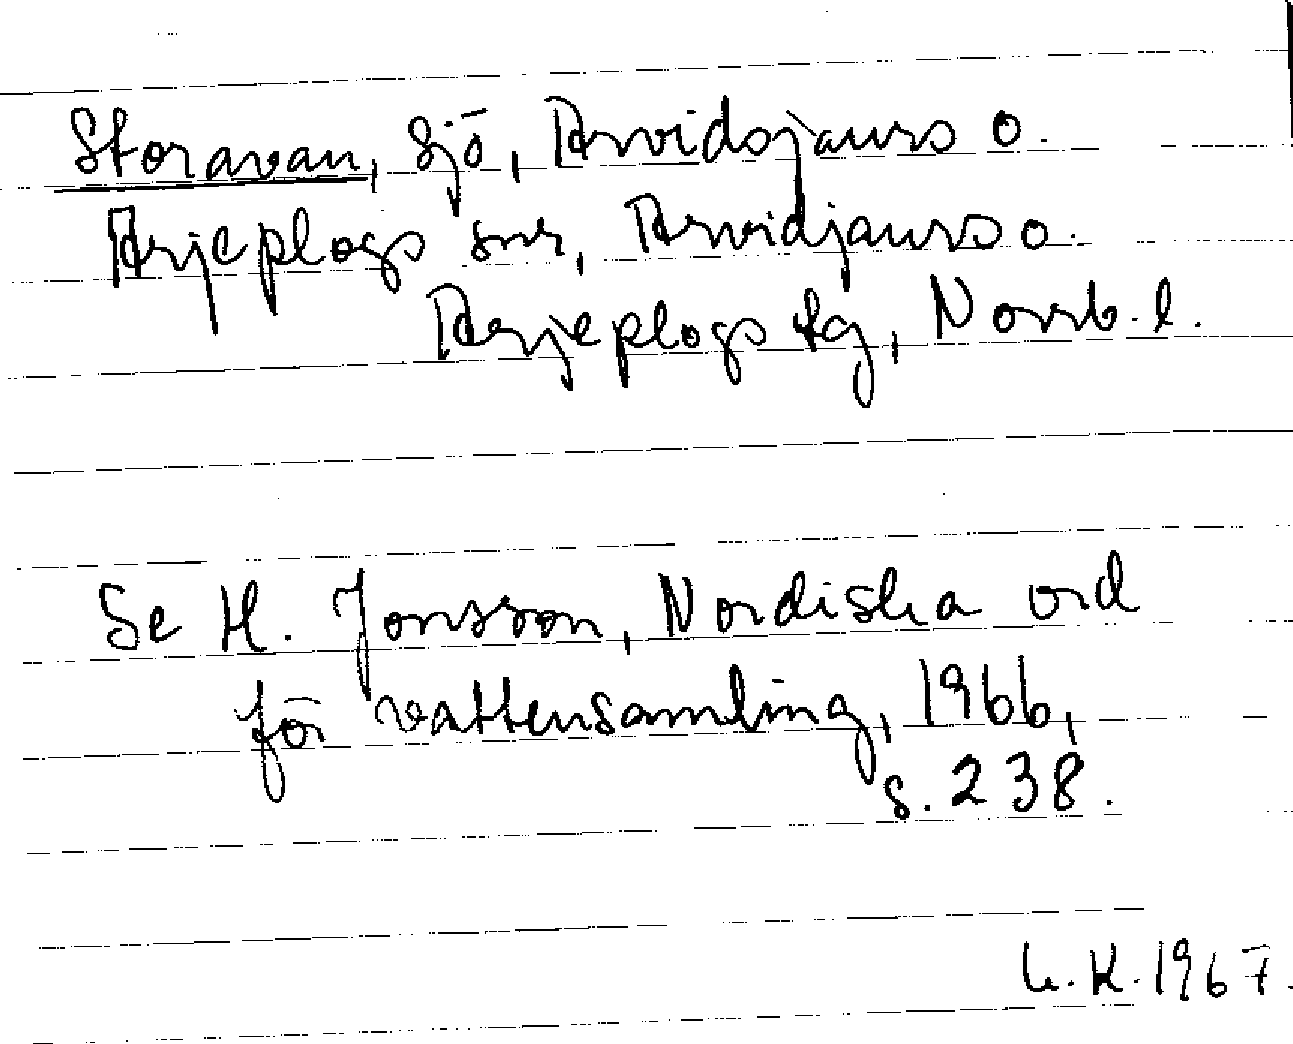 Storavan, sjö, Arvidsjaurs o.
Arjeplogs snr, Arvidjaurs o.
Arjeplogs lg, Norrb. l.
Se H. Jonsson, Nordiska ord
för vattensamling, 1966,
s. 238.
L. K. 1967.